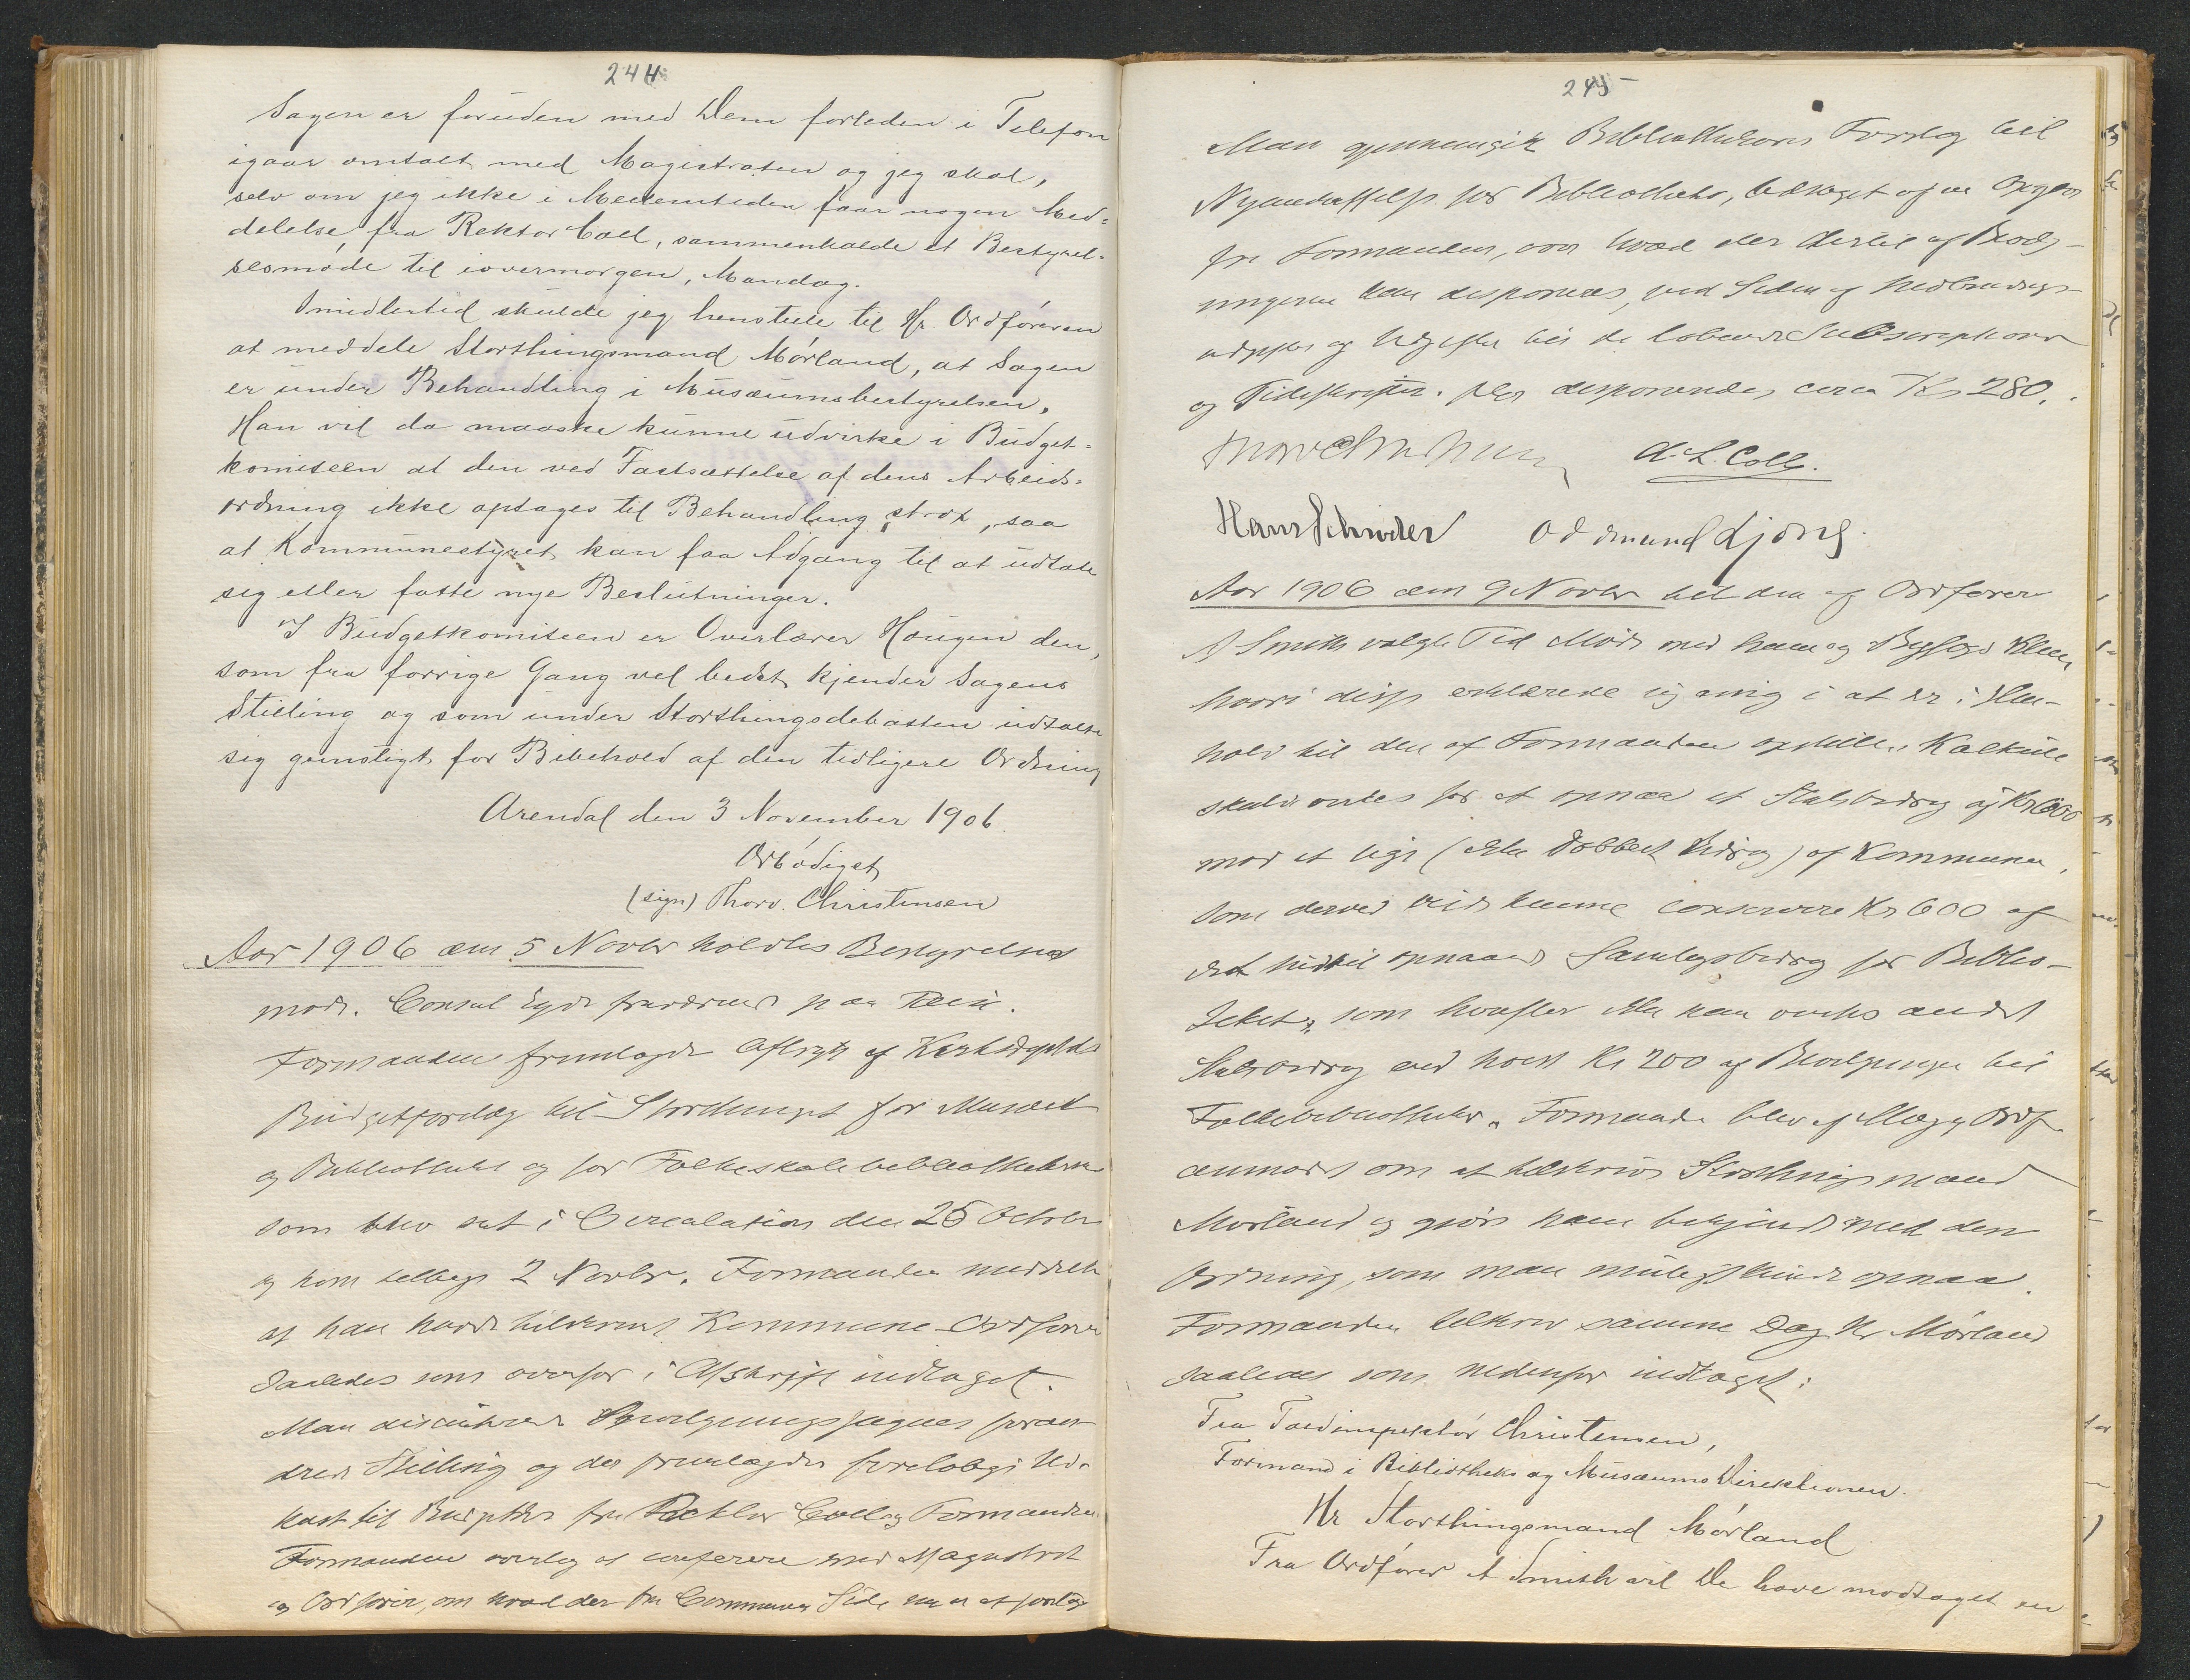 244
Sagen er foruden med Dem forleden i Telefon
igaar omtalt med Magistraten og jeg skal,
selv om jeg ikke i Mellemtiden faar nogen Med=
delelse fra Rektor Coll, sammenkalde et Bestyrel=
sesmöde til iovermorgen, Mandag.
Imidlertid skulde jeg henstille til Hr. Ordföreren
at meddele Storthingsmand Mörland, at Sagen
er under Behandling i Musæumsbestyrelsen.
Han vil da maaske kunne udvirke i Budget=
komiteen at den ved Fastsættelse af dens Arbeids=
ordning ikke optages til Behandling strax, saa
at Kommunestyret kan faa Adgang til at udtale
sig eller fatte nye Beslutninger.
I Budgetkomiteen er Overlærer Hougen den,
som fra forrige Gang vel bedst kjender Sagens
Stilling og som under Storthingsdebatten udtalte
sig gunstigt for Bibehold af den tidligere Ordning
Arendal den 3 November 1906.
Ærbödigst
(sign) Thorv. Christensen
Aar 1906 den 5 Novbr holdtes Bestyrelses
möde. Consul Eyde fraværende paa Reise.
Formanden fremlagde Aftryk af
Budgetforslag til Storthinget for Musæet
og Bibliotheket og for Folkeskolebibliothekerne
som blev sat i Circulation den 25 October
og kom tilbage 2 Novbr. Formanden meddelte
at han havde tilskrevet Kommune-Ordförer
saaledes som ovenfor i Afskrift indtaget.
Man discuterede Bevilgningssagens
Stilling og der fremlagdes foreløbigt Ud-
kast til Budgetter fra Rektor Coll og Formanden
Formanden overlog at conferere med Magistrat
og Ordförer, om hvad der fra Communens Side var at foretage
245
Man gjennemgik Bibliothekarens Forslag til
Nyanskaffelse for Bibliotheket, ledsaget af en Opgave
fra Formanden, over hvad der dertil af Bevilg-
ningerne kan disponeres, ved Siden af Indbindings-
udgifter og Udgifter til de løbende Subscriptioner
og Tidsskrifter. disponendes circa Kr 280.
Thorv Christensen A. L. Coll.
Hans Schrøder Oddmund Ljone
Aar 1906 den 9 Novbr til den af Ordfører
A Smith valgte Tid Møde med ham og Bgfogd Klem
hvori disse erklærede sig enig i at der i Hen-
hold til den af Formanden opstillede Kalkule
skulde virkes for at opnaa et Statsbidrag af Kr 600
mod et lige (eller dobbelt Bidrag) af Kommunen,
som derved vilde kunne conservere Kr 600 af
det hidtil opnaaede Samlagsbidrag for Biblio-
theket, som hvorefter der kan virkes andet
Statsbidrag end höist Kr 200 af Bevilgningen til
Folkebibliotheker. Formanden blev af Mag. og Ordf.
anmodet om at tilskrive Storthingsmand
Mørland og gjøre ham bekjendt med den
Ordning, som man muligst kunde opnaa.
Formanden tilskrev samme Dag Hr Mörland
saaledes som nedenfor indtaget:
Fra Toldinspektör Christensen,
Formand i Bibliotheks og Musæums Direktionen.
Hr Storthingsmand Mörland
Fra Ordförer A Smith vil De have modtaget en